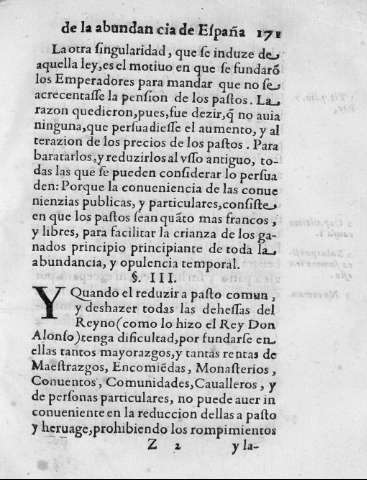 de la abundan cia de España 171
La otra singularidad, que se induze de
aquella ley, es el motiuo en que se fundarõ
los Emperadores para mandar que no se
acrecentasse la pension de los pastos. La
razon quedieron, pues, fue dezir, q̃ no auia
ninguna, que persuadiesse el aumento, y al
terazion de los precios de los pastos. Para
baratarlos, y reduzirlos al vsso antiguo, to-
das las que se pueden considerar lo persua
den: Porque la conueniencia de las conue
nienzias publicas, y particulares, consiste
en que los pastos sean quãto mas francos,
y libres, para facilitar la crianza de los ga-
nados principio principiante de toda la
abundancia, y opulencia temporal.
§. III.
Y Quando el reduzir a pasto comun,
y deshazer todas las dehessas del
Reyno (como lo hizo el Rey Don
Alonso) tenga dificultad, por fundarse en
ellas tantos mayorazgos, y tantas rentas de
Maestrazgos, Encomiẽdas, Monasterios,
Conuentos, Comunidades, Caualleros, y
de personas particulares, no puede auer in
conueniente en la reduccion dellas a pasto
y heruage, prohibiendo los rompimientos
Z 2 y la-